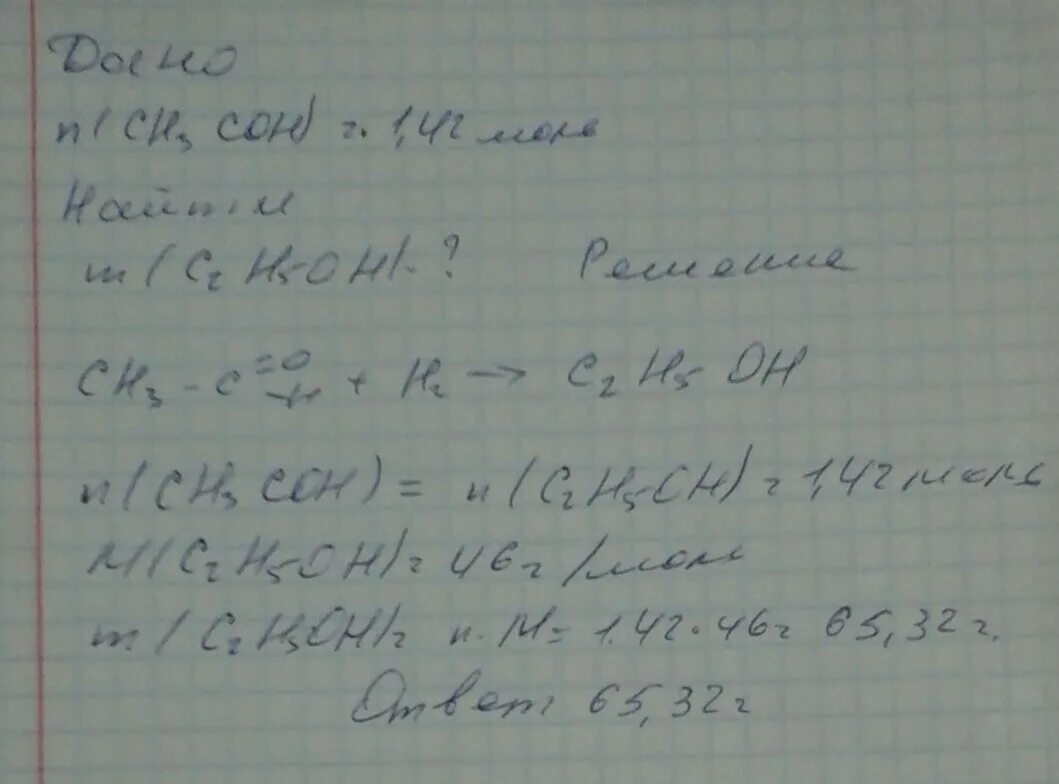 Дано
n(CH₃ COH) = 1,42 моль
Найти
m(C₂H₅OH)-?
Решение
CH₃-C=O-H + H₂ → C₂H₅OH
n(CH₃COH) = n(C₂H₅OH) = 1,42 моль
M(C₂H₅OH) = 46 г/моль
m(C₂H₅OH) = n·M = 1.42·46 = 65,32 г.
Ответ 65,32 г